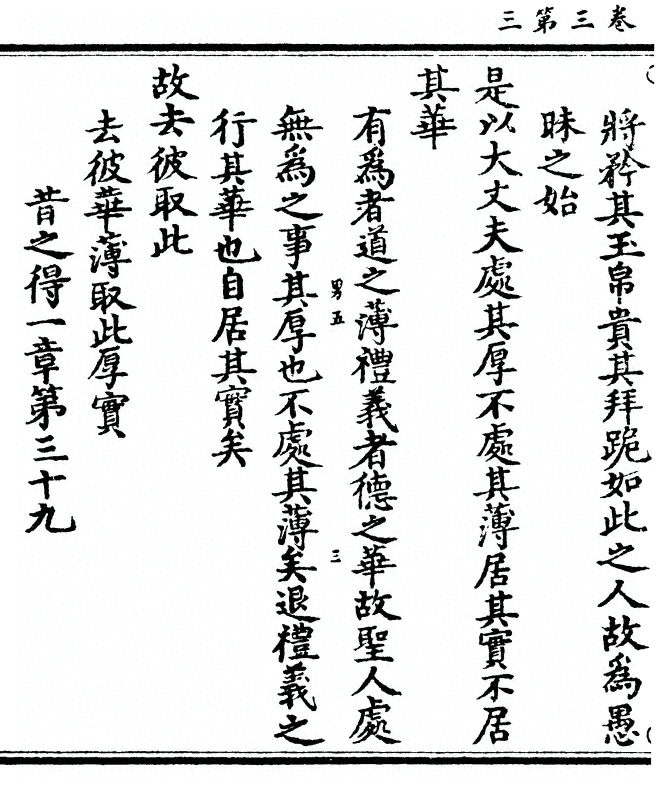 卷三第三
將矜其玉帛貴其拜跪如此之人故為愚
昧之始
是以大丈夫處其厚不處其薄居其實不居
其華
有為者道之薄禮義者德之華故聖人處
男五
三
無為之事其厚也不處其薄矣退禮義之
行其華也自居其實矣
故去彼取此
去彼華薄取此厚實
昔之得一章第三十九